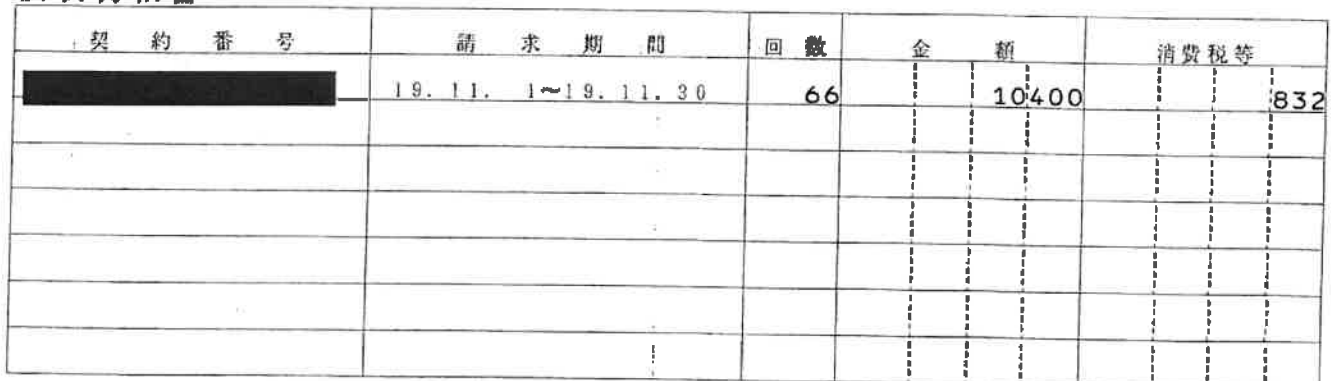 契約番号 請求期間 回数 金額 消費税等
19.11. 1～19.11.30 66 10400 832